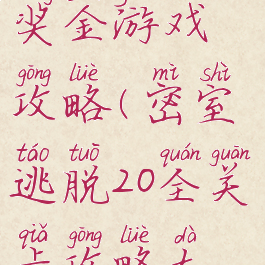 奖金游戏
gōng lüè mì shì
攻略(密室
táo tuō quán guān
逃脱20全关
qiǎ gōng lüè dà
卡攻略大